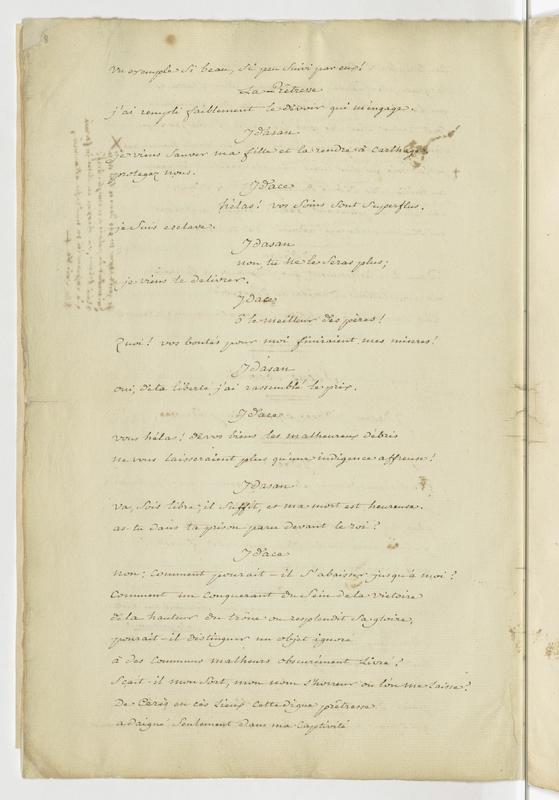 un exemple si beau, si peu suivi par eux!
La Prêtresse
j'ai rempli faiblement le devoir qui m'engage.
Ydasan
je viens sauver ma fille et la rendre à Carthage
protegez nous.
Ydace
hélas! vos soins sont superflus.
je suis esclave.
Ydasan
non, tu ne le seras plus;
je viens te délivrer.
Ydace
ô le meilleur des pères!
quoi! vos bontés pour moi finiraient mes misères!
Ydasan
oui, de ta liberté j'ai rassemblé le prix.
Ydace
vous héla! de vos biens les malheureux débris
ne vous laisseraient plus qu'une indigence affreuse!
Ydasan
va, sois libre; il suffit, et ma mort est heureuse.
as-tu dans ta prison paru devant le roi?
Ydace
non; comment pourait-il s'abaisser jusqu'à moi?
comment un conquerant du sein de la victoire
de la hauteur du trône ou resplendit sa gloire,
pourait-il distinguer un objet ignoré
à des communs malheurs obscurément livré?
Scait-il mon sort, mon nom l'horreur ou l'on me laisse?
De Cerès en ces lieux cette digne prêtresse
a daigné seulement dans ma captivité